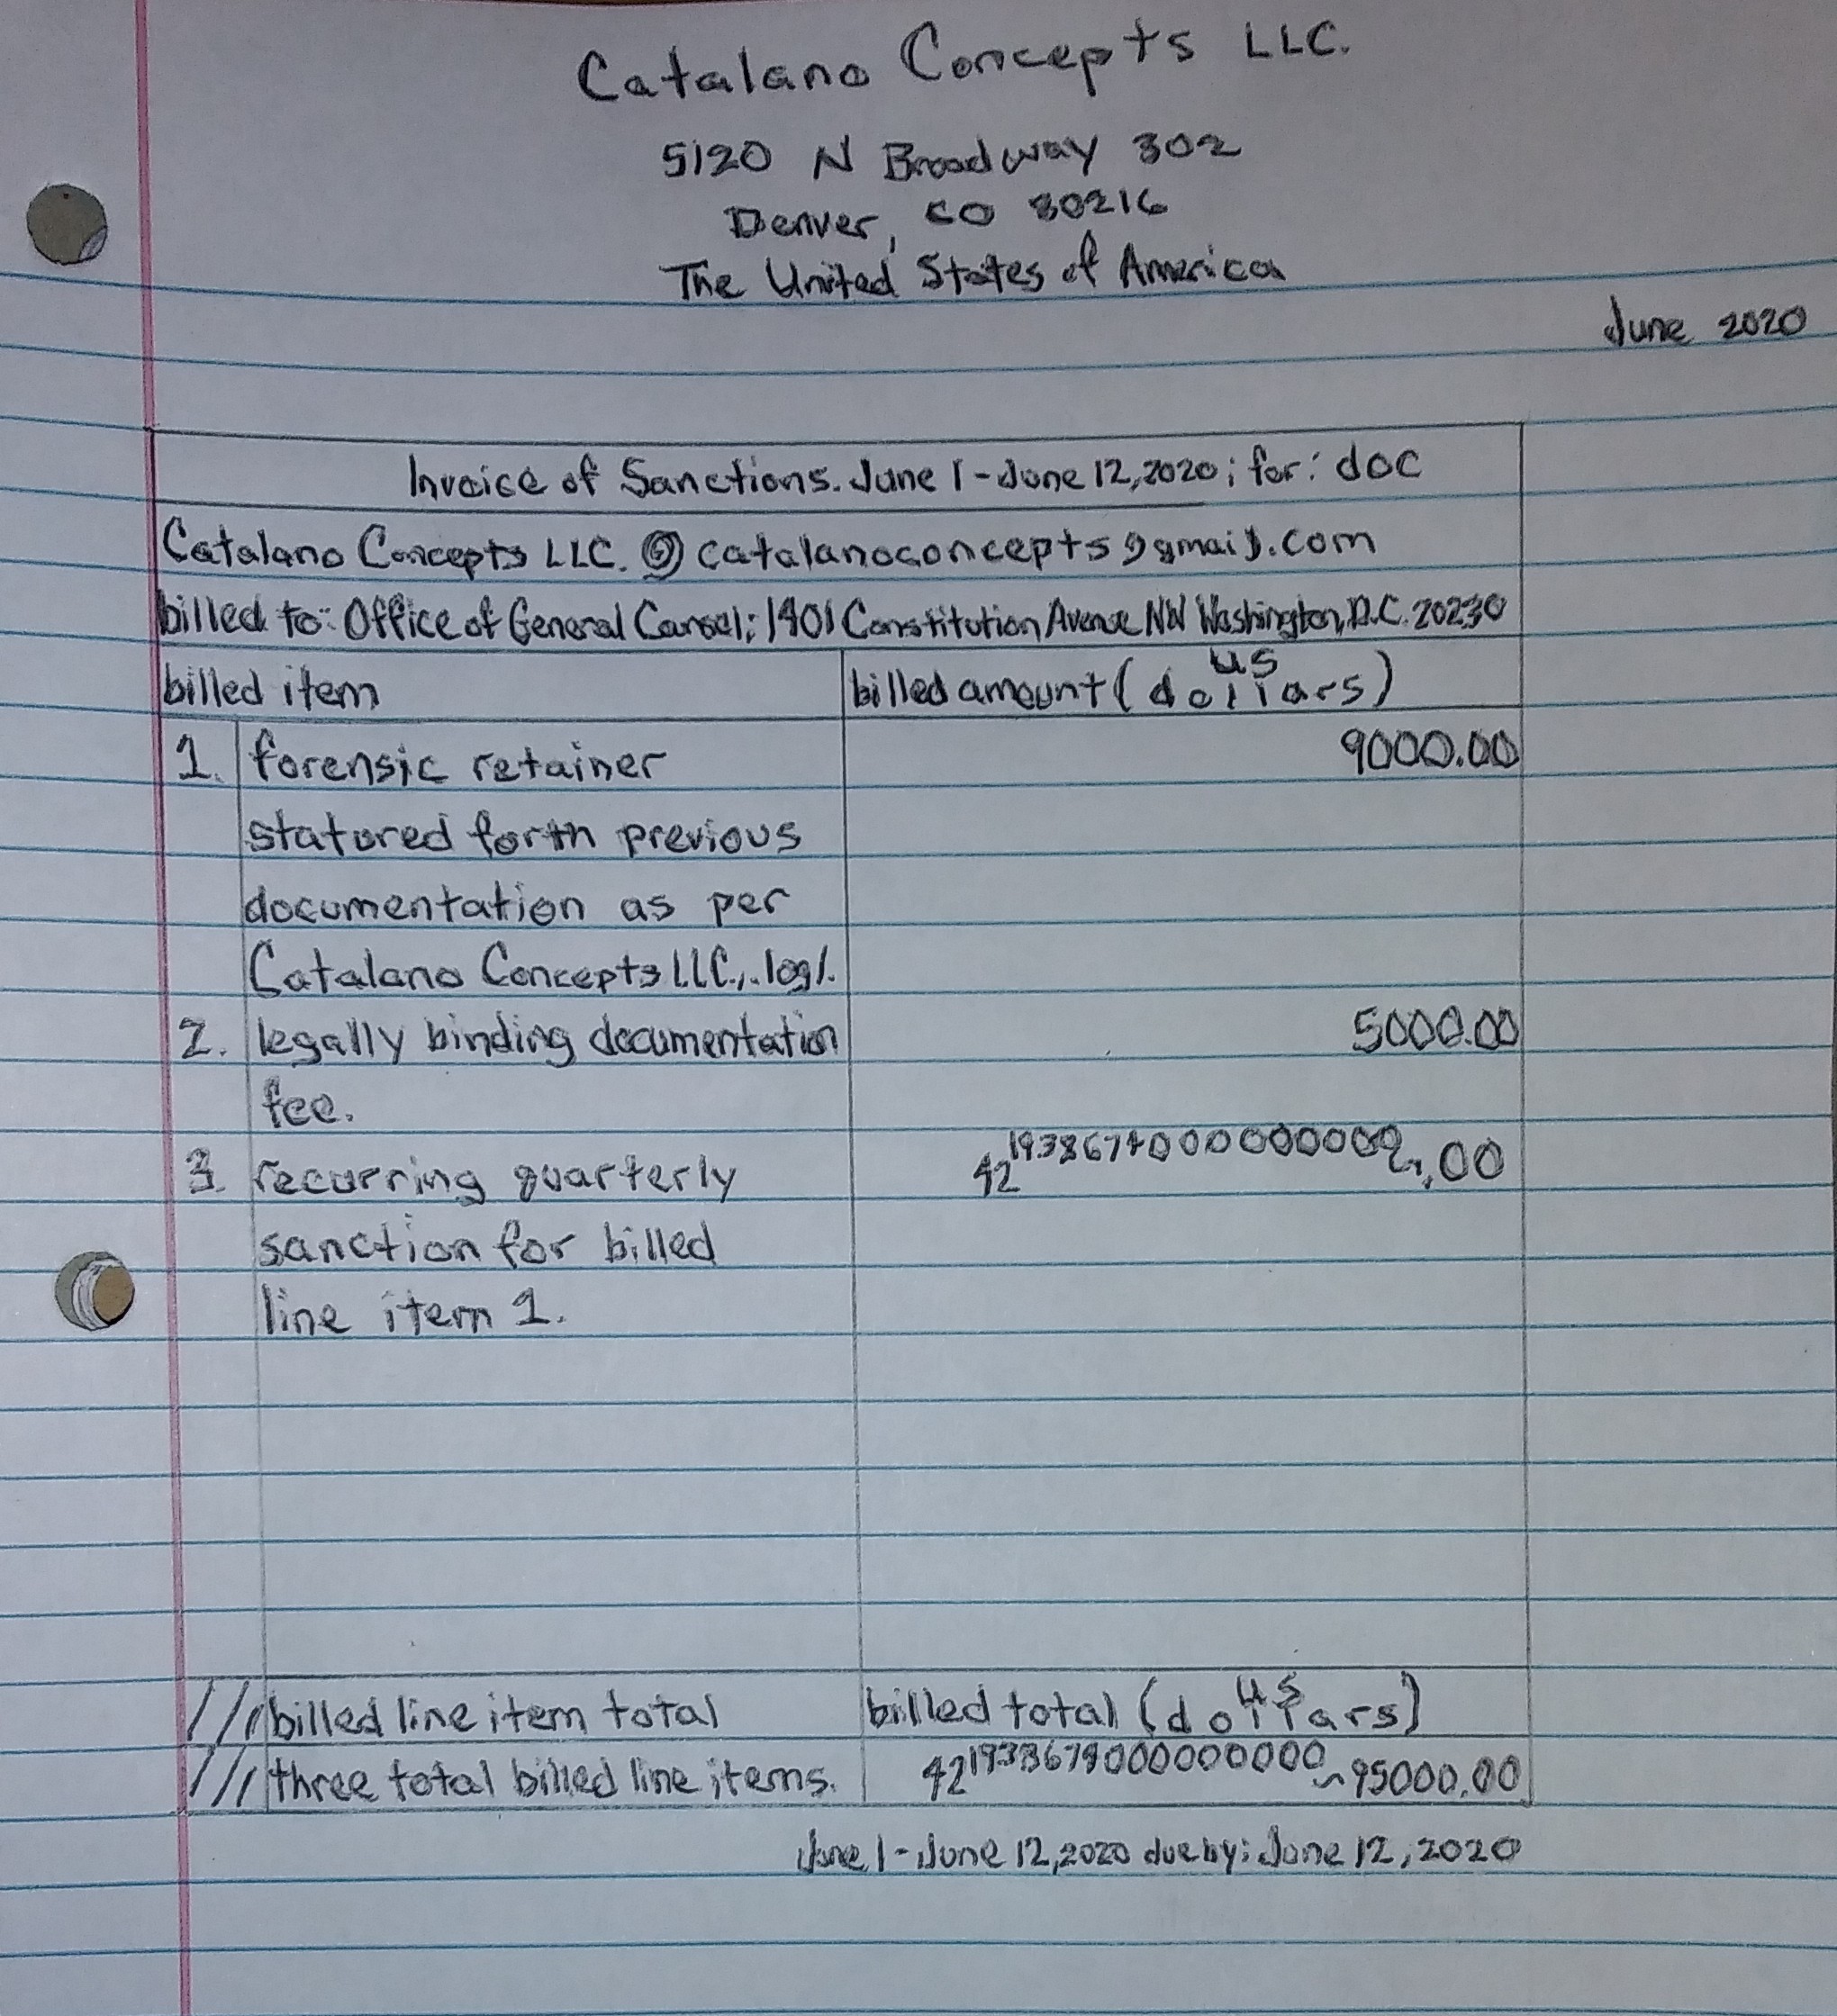 Catalano Concepts LLC.
5120 N Broadway 302
Denver, CO 80216
The United States of America
June 2020
Invoice of Sanctions. June 1-June 12, 2020; for: doc
Catalano Concepts LLC. @ catalanoconcepts@gmail.com
billed to: Office of General Consel; 1401 Constitution Avenue NW Washington, D.C. 20230
billed item billed amount (US dollars)
1. forensic retainer 9000.00
statured forth previous
documentation as per
Catalano Concepts LLC., .log/.
2. legally binding documentation 5000.00
fee.
3. recurring quarterly
sanction for billed
line item 1.
///billed line item total billed total (US dollars)
///three total billed line items.
June 1-June 12, 2020 due by: June 12, 2020